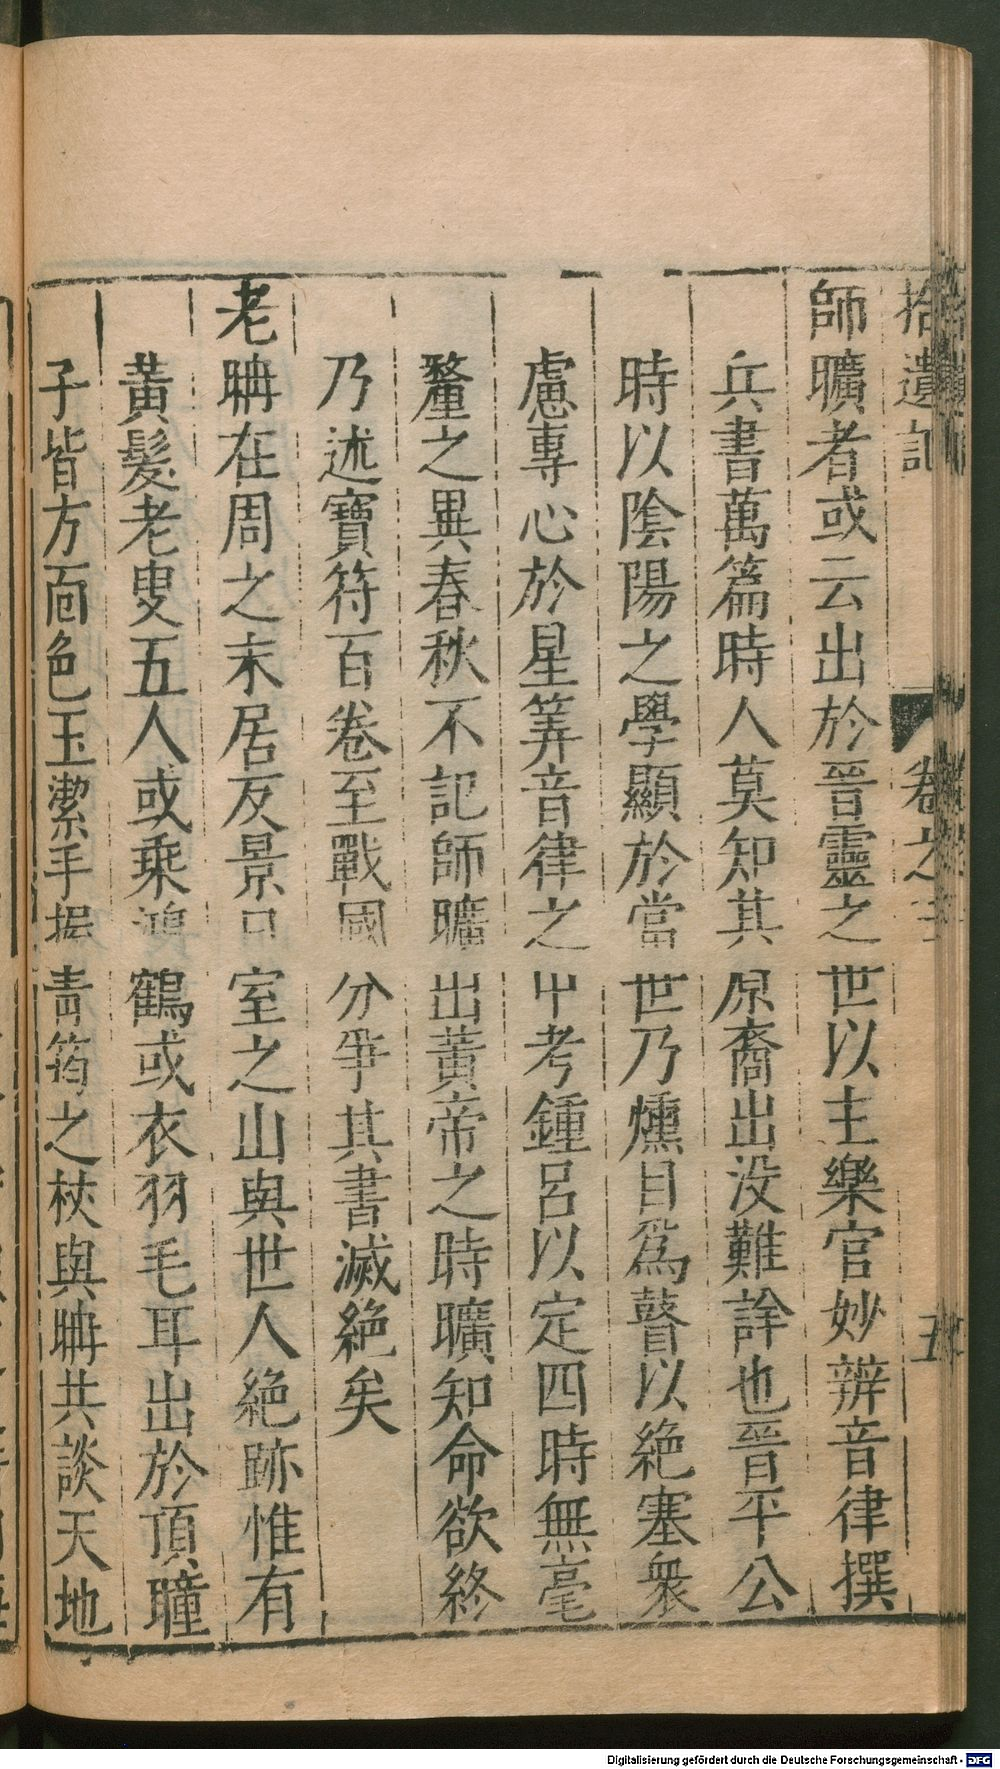 拾遺記 卷之三 五
師曠者或云出於晉靈之世以主樂官妙辨音律撰
兵書萬篇時人莫知其原裔出没難詳也晉平公
時以陰陽之學顯於當世乃燻目爲瞽以絶塞衆
慮專心於星筭音律之中考鍾呂以定四時無毫
釐之異春秋不記師曠出黃帝之時曠知命欲終
乃述寶符百卷至戰國分爭其書滅絶矣
老聃在周之末居反景日室之山與世人絶跡惟有
黃髮老叟五人或乘鴻鶴或衣羽毛耳出於頂瞳
子皆方面色玉潔手握青筠之杖與聃共談天地
Digitalisierung gefördert durch die Deutsche Forschungsgemeinschaft - DFG